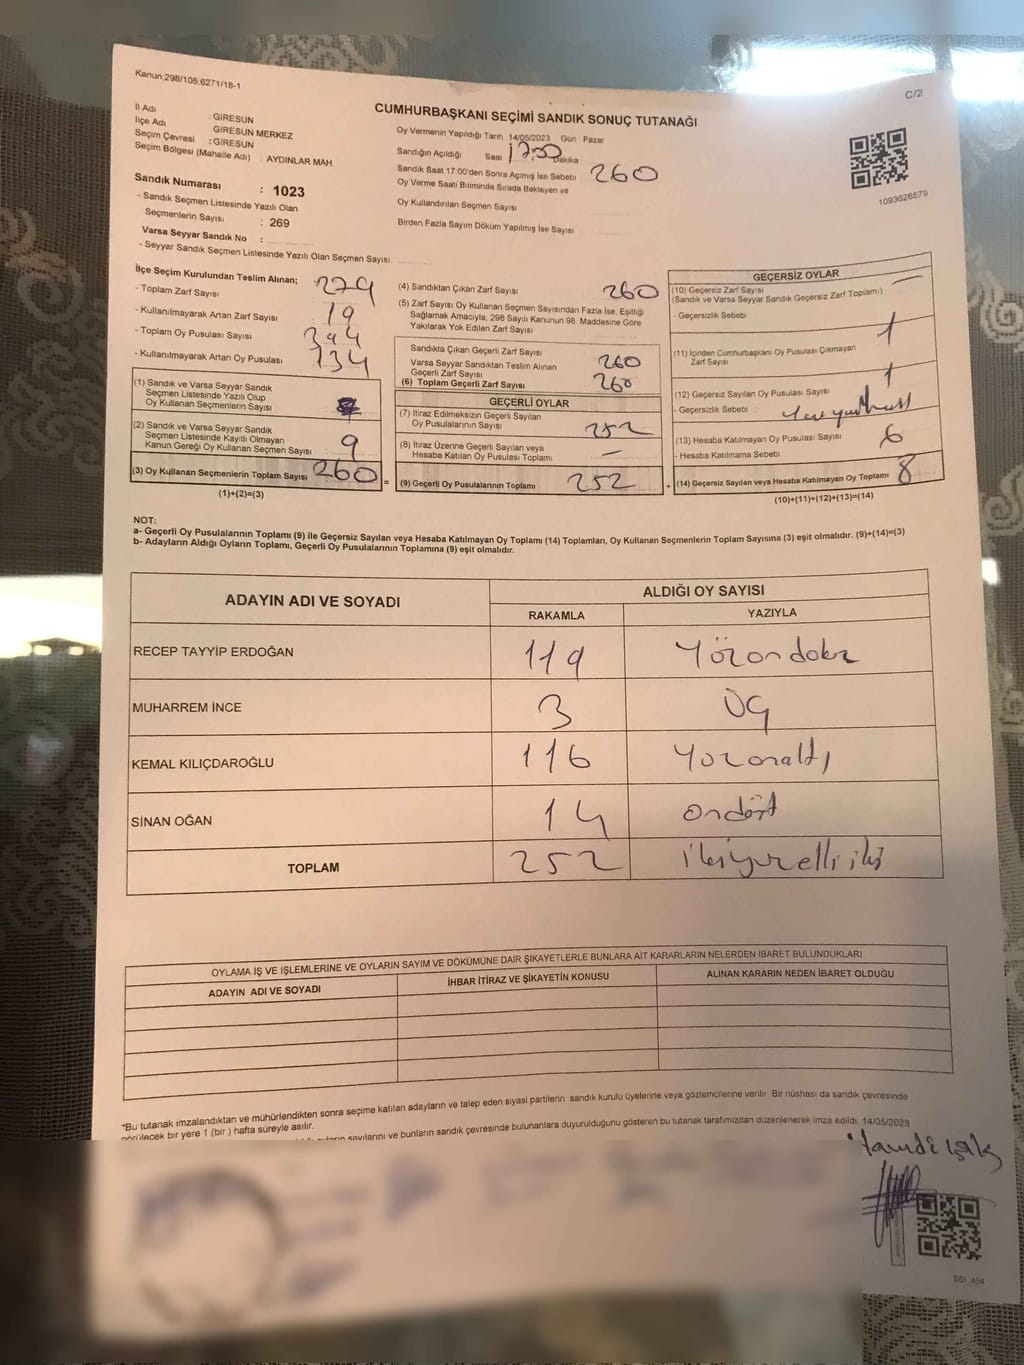 Kanun;298/105,6271/18-1
C/2
CUMHURBAŞKANI SEÇİMİ SANDIK SONUÇ TUTANAĞI
İl Adı : GİRESUN
İlçe Adı : GİRESUN MERKEZ
Seçim Çevresi : GİRESUN
Seçim Bölgesi (Mahalle Adı) : AYDINLAR MAH.
Sandık Numarası : 1023
- Sandık Seçmen Listesinde Yazılı Olan
Seçmenlerin Sayısı : 269
Varsa Seyyar Sandık No :
- Seyyar Sandık Seçmen Listesinde Yazılı Olan Seçmen Sayısı
Oy Vermenin Yapıldığı Tarih 14/05/2023 Gün : Pazar
Sandığın Açıldığı Saat 17:00 Dakika
Sandık Saat 17:00'den Sonra Açılmış İse Sebebi
260
Oy Verme Saati Bitiminde Sırada Bekleyen ve
Oy Kullandırılan Seçmen Sayısı
Birden Fazla Sayım Döküm Yapılmış İse Sayısı
1093626579
İlçe Seçim Kurulundan Teslim Alınan;
- Toplam Zarf Sayısı 279
- Kullanılmayarak Artan Zarf Sayısı 19
- Toplam Oy Pusulası Sayısı 394
- Kullanılmayarak Artan Oy Pusulası 134
(1) Sandık ve Varsa Seyyar Sandık
Seçmen Listesinde Yazılı Olup
Oy Kullanan Seçmenlerin Sayısı
(2) Sandık ve Varsa Seyyar Sandık
Seçmen Listesinde Kayıtlı Olmayan
Kanun Gereği Oy Kullanan Seçmen Sayısı 9
(3) Oy Kullanan Seçmenlerin Toplam Sayısı 260
(1)+(2)=(3)
(4) Sandıktan Çıkan Zarf Sayısı 260
(5) Zarf Sayısı Oy Kullanan Seçmen Sayısından Fazla İse, Eşitliği
Sağlamak Amacıyla, 298 Sayılı Kanunun 98. Maddesine Göre
Yakılarak Yok Edilen Zarf Sayısı
Sandıkta Çıkan Geçerli Zarf Sayısı 260
Varsa Seyyar Sandıktan Teslim Alınan
Geçerli Zarf Sayısı
(6) Toplam Geçerli Zarf Sayısı 260
GEÇERLİ OYLAR
(7) İtiraz Edilmeksizin Geçerli Sayılan
Oy Pusulalarının Sayısı 252
(8) İtiraz Üzerine Geçerli Sayılan veya
Hesaba Katılan Oy Pusulası Toplamı -
= (9) Geçerli Oy Pusulalarının Toplamı 252
GEÇERSİZ OYLAR
(10) Geçersiz Zarf Sayısı
(Sandık ve Varsa Seyyar Sandık Geçersiz Zarf Toplamı)
- Geçersizlik Sebebi
1
(11) İçinden Cumhurbaşkanı Oy Pusulası Çıkmayan
Zarf Sayısı
(12) Geçersiz Sayılan Oy Pusulası Sayısı 1
- Geçersizlik Sebebi
(13) Hesaba Katılmayan Oy Pusulası Sayısı 6
- Hesaba Katılmama Sebebi
+ (14) Geçersiz Sayılan veya Hesaba Katılmayan Oy Toplamı 8
(10)+(11)+(12)+(13)=(14)
NOT:
a- Geçerli Oy Pusulalarının Toplamı (9) ile Geçersiz Sayılan veya Hesaba Katılmayan Oy Toplamı (14) Toplamları, Oy Kullanan Seçmenlerin Toplam Sayısına (3) eşit olmalıdır. (9)+(14)=(3)
b- Adayların Aldığı Oyların Toplamı, Geçerli Oy Pusulalarının Toplamına (9) eşit olmalıdır.
ADAYIN ADI VE SOYADI
ALDIĞI OY SAYISI
RAKAMLA YAZIYLA
RECEP TAYYİP ERDOĞAN 119 Yüzondokuz
MUHARREM İNCE 3 ÜÇ
KEMAL KILIÇDAROĞLU 116 Yüzonaltı
SİNAN OĞAN 14 ondört
TOPLAM 252 ikiyüzelliiki
OYLAMA İŞ VE İŞLEMLERİNE VE OYLARIN SAYIM VE DÖKÜMÜNE DAİR ŞİKAYETLERLE BUNLARA AİT KARARLARIN NELERDEN İBARET BULUNDUKLARI
ADAYIN ADI VE SOYADI İHBAR İTİRAZ VE ŞİKAYETİN KONUSU ALINAN KARARIN NEDEN İBARET OLDUĞU
*Bu tutanak imzalandıktan ve mühürlendikten sonra seçime katılan adayların ve talep eden siyasi partilerin sandık kurulu üyelerine veya gözlemcilerine verilir. Bir nüshası da sandık çevresinde
görülecek bir yere 1 (bir) hafta süreyle asılır.
sayılarını ve bunların sandık çevresinde bulunanlara duyurulduğunu gösteren bu tutanak tarafımızdan düzenlenerek imza edildi. 14/05/2023